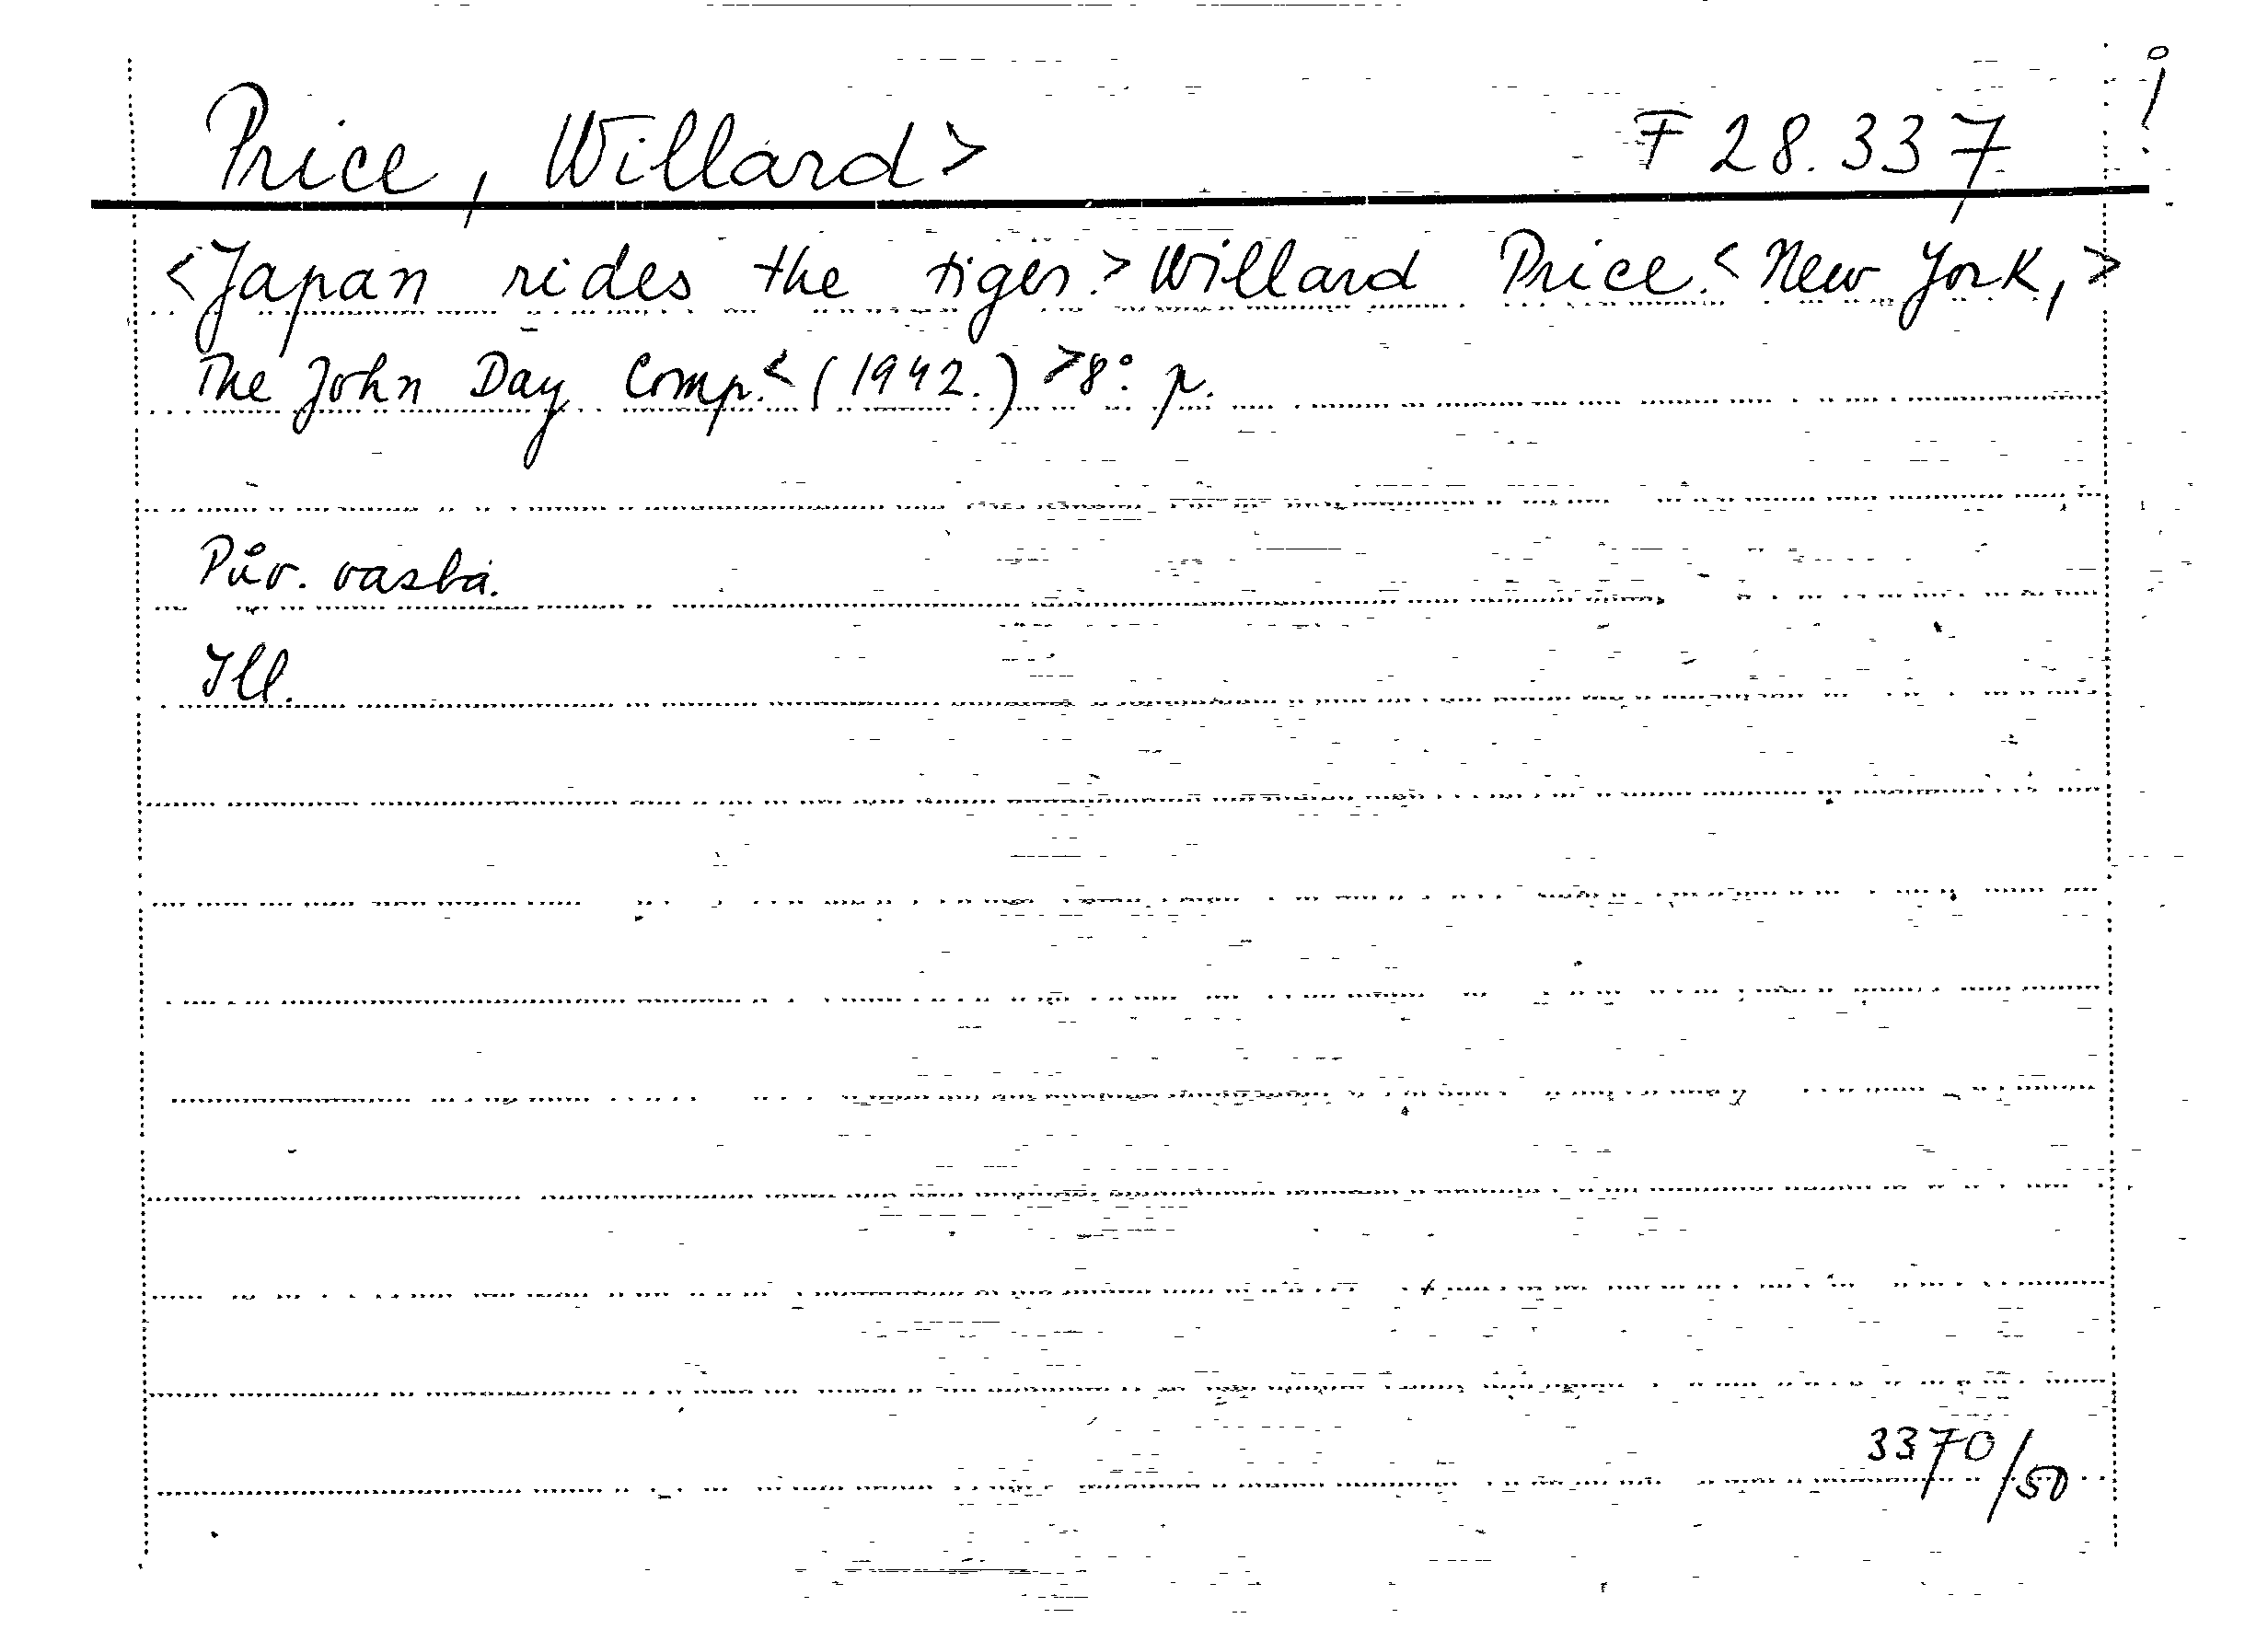 Price, Willard> F 28.337
<Japan rides the tiger.> Willard Price.< New York,>
The John Day Comp.< (1942.) >8° p.
Pův. vazba.
Ill.
3370/50